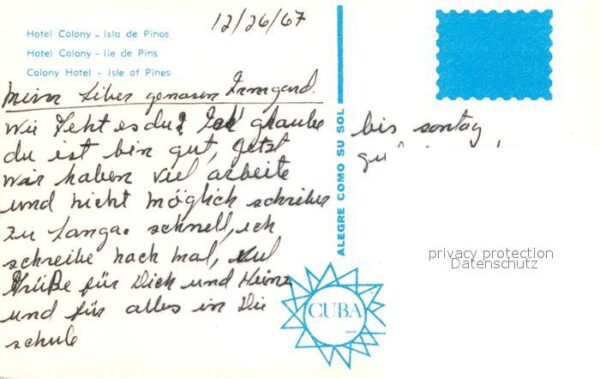 12/26/67
Hotel Colony - Isla de Pinos
Hotel Colony - Ile de Pins
Colony Hotel - Isle of Pines
mein Liber genosin Irmgard.
Wie Teht es du? Ich glaube
du ist bin gut, Jetzt
wir haben viel arbeite
und nicht möglich schreiben
zu Langa schnell, ich
schreibe nach mal, viel
Grüße für Dich und Heinz
und für alles in Die
schule
bis sontag
ALEGRE COMO SU SOL
CUBA
privacy protection
Datenschutz